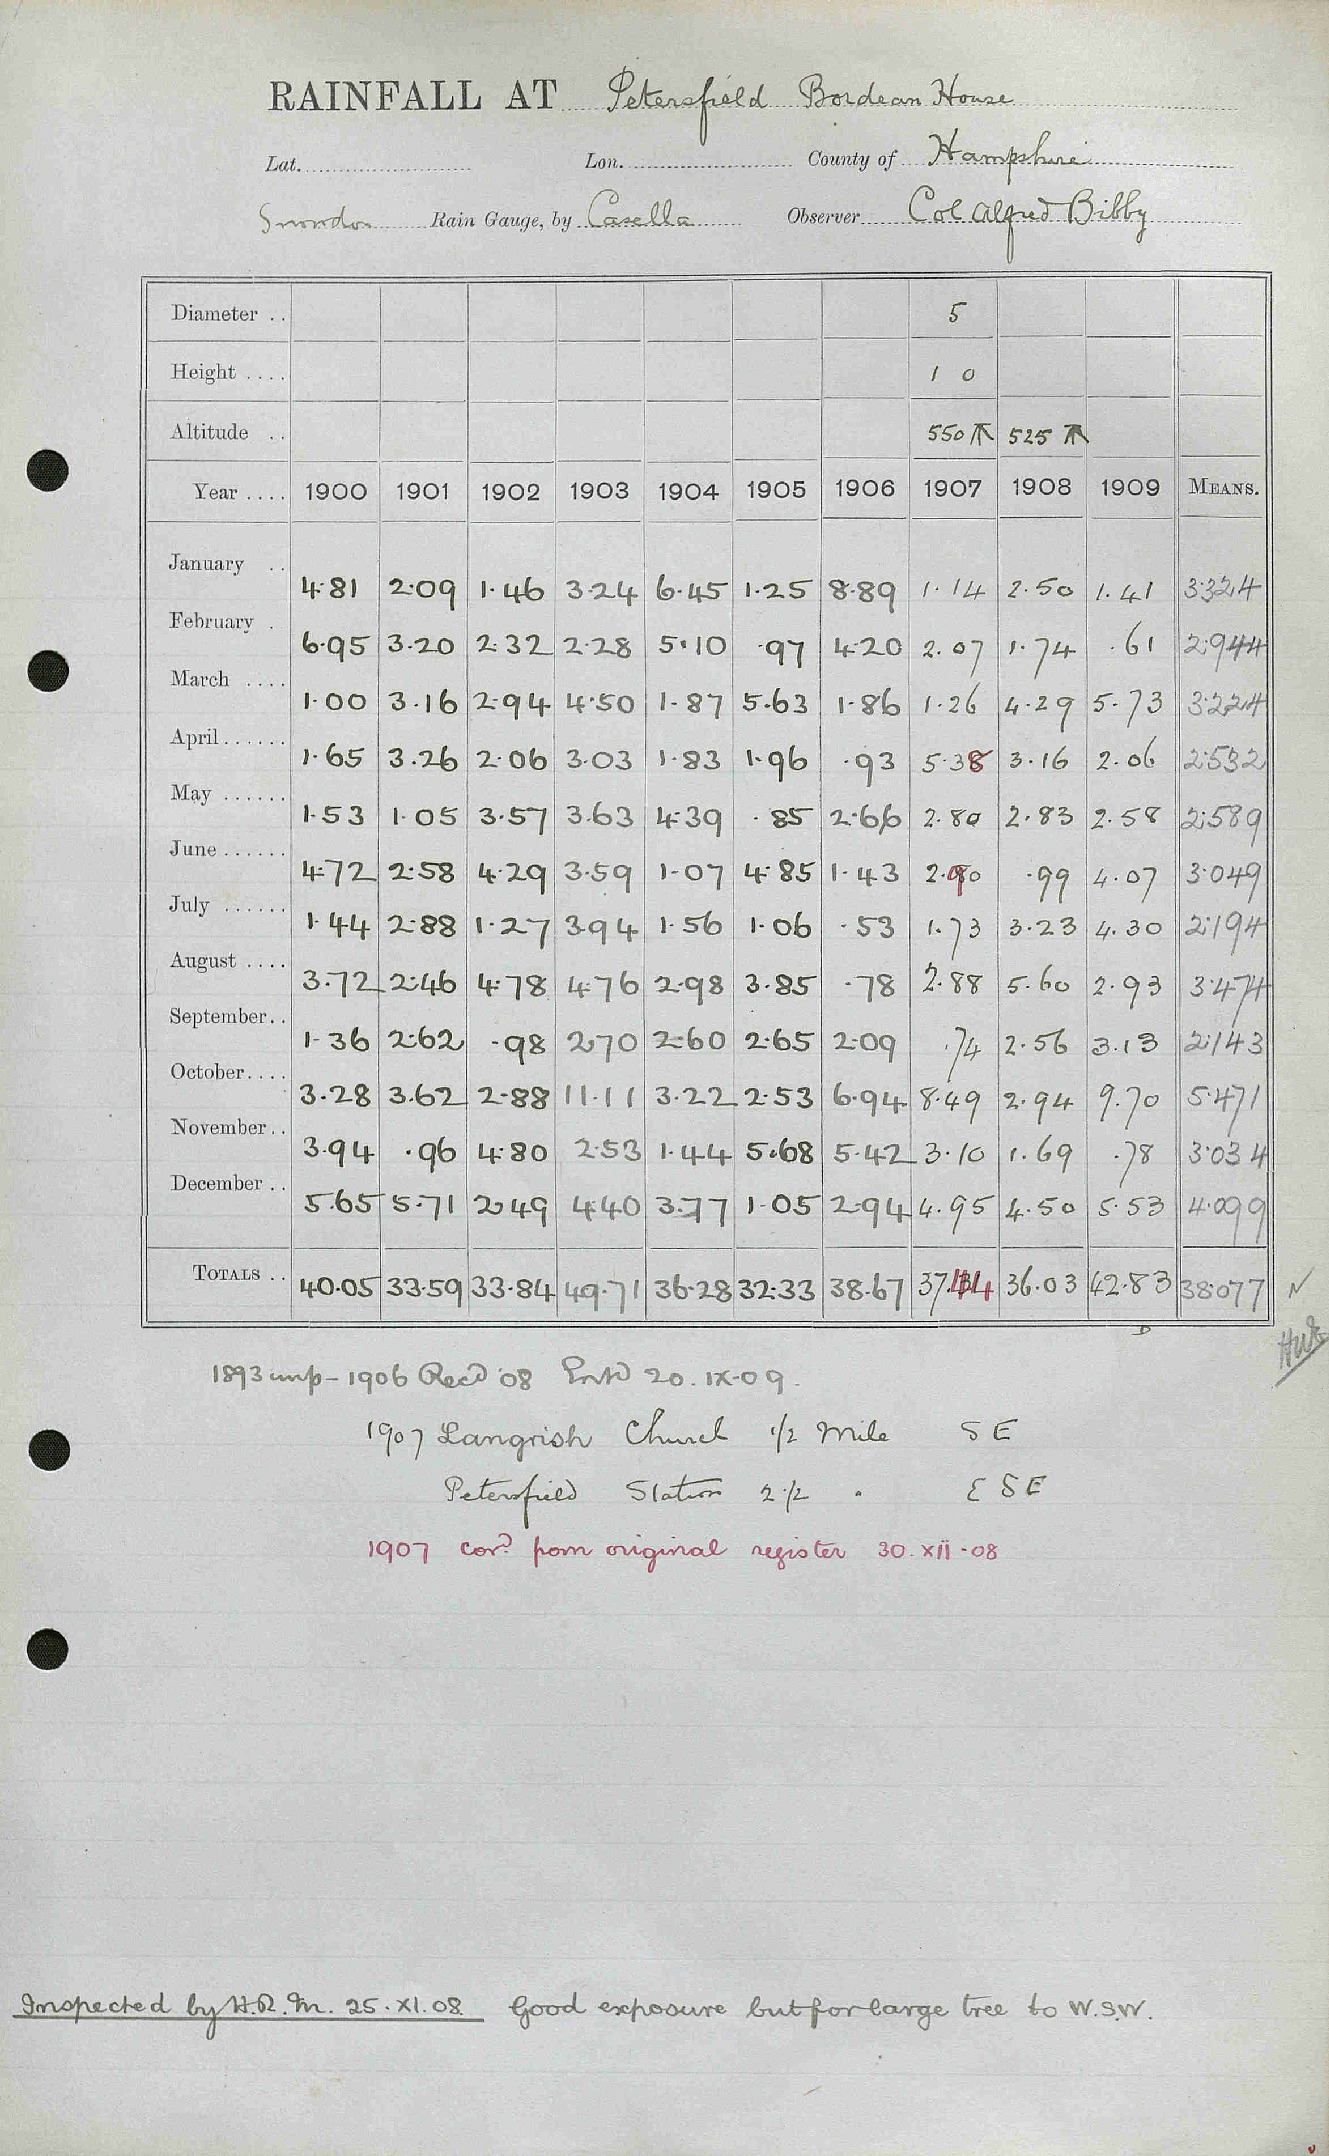 RAINFALL AT Petersfield Bordean House
Lat. Lon. County of Hampshire
Snowdon Rain Gauge, by Casella Observer Col Alfred Bibby
Diameter .. 5
Height .... 1 0
Altitude .. 550 525
Year .... 1900 1901 1902 1903 1904 1905 1906 1907 1908 1909 MEANS.
January .. 4.81 2.09 1.46 3.24 6.45 1.25 8.89 1.14 2.50 1.41 3.324
February . 6.95 3.20 2.32 2.28 5.10 .97 4.20 2.07 1.74 .61 2.944
March .... 1.00 3.16 2.94 4.50 1.87 5.63 1.86 1.26 4.29 5.73 3.224
April...... 1.65 3.26 2.06 3.03 1.83 1.96 .93 5.38 3.16 2.06 2.532
May ...... 1.53 1.05 3.57 3.63 4.39 .85 2.66 2.80 2.83 2.58 2.589
June...... 4.72 2.58 4.29 3.59 1.07 4.85 1.43 2.90 .99 4.07 3.049
July ...... 1.44 2.88 1.27 3.94 1.56 1.06 .53 1.73 3.23 4.30 2.194
August .... 3.72 2.46 4.78 4.76 2.98 3.85 .78 2.88 5.60 2.93 3.474
September.. 1.36 2.62 .98 2.70 2.60 2.65 2.09 .74 2.56 3.13 2.143
October.... 3.28 3.62 2.88 11.11 3.22 2.53 6.94 8.49 2.94 9.70 5.471
November.. 3.94 .96 4.80 2.53 1.44 5.68 5.42 3.10 1.69 .78 3.034
December .. 5.65 5.71 2.49 4.40 3.77 1.05 2.94 4.95 4.50 5.53 4.099
TOTALS .. 40.05 33.59 33.84 49.71 36.28 32.33 38.67 37.44 36.03 42.83 38.077
1893 - 1906 Recd '08 Entd 20.IX.09.
1907 Langrish Church 1/2 Mile SE
Petersfield Station 2 1/2 " ESE
1907 cord from original register 30.XII.08
Inspected by H.R.M. 25.XI.08 Good exposure but for large tree to W.S.W.